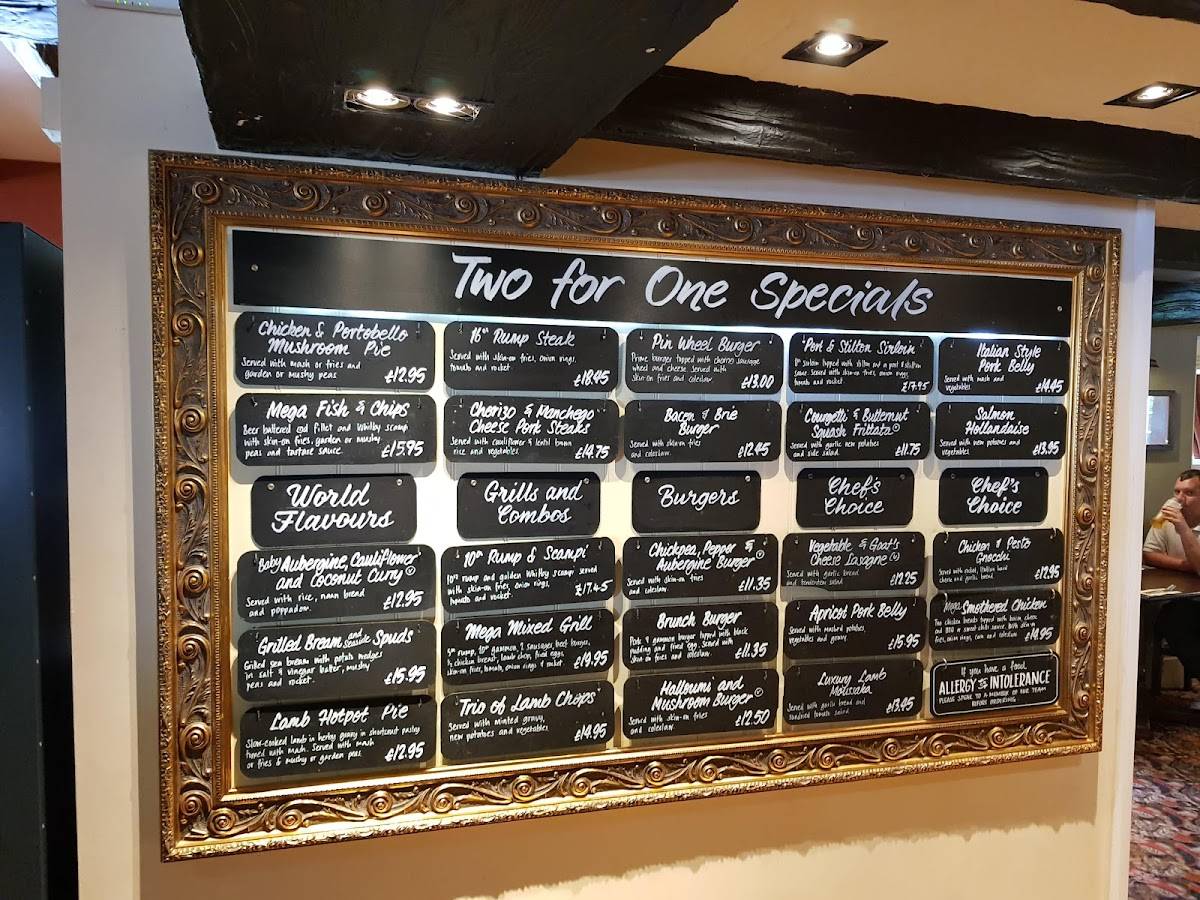 Two for One Specials
Chicken & Portobello
Mushroom Pie
Served with mash or fries and
garden or mushy peas
£12.95
Mega Fish & Chips
Beer battered cod fillet and Whitby scampi
with skin-on fries, garden or mushy
peas and tartare sauce.
£15.95
World
Flavours
Baby Aubergine, Cauliflower
and Coconut Curry
Served with rice, naan bread
and poppadom.
£12.95
Grilled Bream and Seaside Spuds
Grilled sea bream with potato wedges
in salt & vinegar butter, mushy
peas and rocket.
£15.95
Lamb Hotpot Pie
Slow-cooked lamb in herby gravy in shortcrust pastry
topped with mash. Served with mash
or fries & mushy or garden peas.
£12.95
16oz Rump Steak
Served with skin-on fries, onion rings,
tomato and rocket
£18.45
Chorizo & Manchego
Cheese Pork Steaks
Served with cauliflower & lentil brown
rice and vegetables
£14.75
Grills and
Combos
10oz Rump & Scampi
10oz rump and golden Whitby scampi served
with skin-on fries, onion rings,
tomato and rocket
£17.45
Mega Mixed Grill
5oz rump, 10oz gammon, 2 sausages, beef burger,
½ chicken breast, lamb chop, fried eggs,
skin-on fries, tomato, onion rings & rocket.
£19.95
Trio of Lamb Chops
Served with minted gravy,
new potatoes and vegetables.
£14.95
Pin Wheel Burger
Prime burger topped with chorizo sausage
wheel and cheese. Served with
skin-on fries and coleslaw
£13.00
Bacon & Brie
Burger
Served with skin-on fries
and coleslaw.
£12.45
Burgers
Chickpea, Pepper &
Aubergine Burger
Served with skin-on fries
and coleslaw.
£11.35
Brunch Burger
Pork & gammon burger topped with black
pudding and fried egg. Served with
skin on fries and coleslaw.
£11.35
Halloumi and
Mushroom Burger
Served with skin-on fries
and coleslaw.
£12.50
Port & Stilton Sirloin
8oz sirloin topped with stilton and a port & stilton
sauce. Served with skin-on fries, onion rings,
tomato and rocket
£17.45
Courgetti & Butternut
Squash Frittata
Served with garlic new potatoes
and side salad.
£11.75
Chef's
Choice
Vegetable & Goat's
Cheese Lasagne
Served with garlic bread
and salad
£12.25
Apricot Pork Belly
Served with mustard potatoes,
vegetables and gravy
£15.95
Luxury Lamb
Moussaka
Served with garlic bread and
sundried tomato salad
£13.95
Italian Style
Pork Belly
Served with mash and
vegetables
£14.45
Salmon
Hollandaise
Served with new potatoes and
vegetables
£13.95
Chef's
Choice
Chicken & Pesto
Gnocchi
Served with salad, Italian hard
cheese and garlic bread
£12.95
Mega Smothered Chicken
Two chicken breasts topped with bacon, cheese
and BBQ or sweet chilli sauce. Served with skin on
fries, onion rings, corn and coleslaw
£14.95
If you have a food
ALLERGY or INTOLERANCE
PLEASE SPEAK TO A MEMBER OF THE TEAM
BEFORE ORDERING